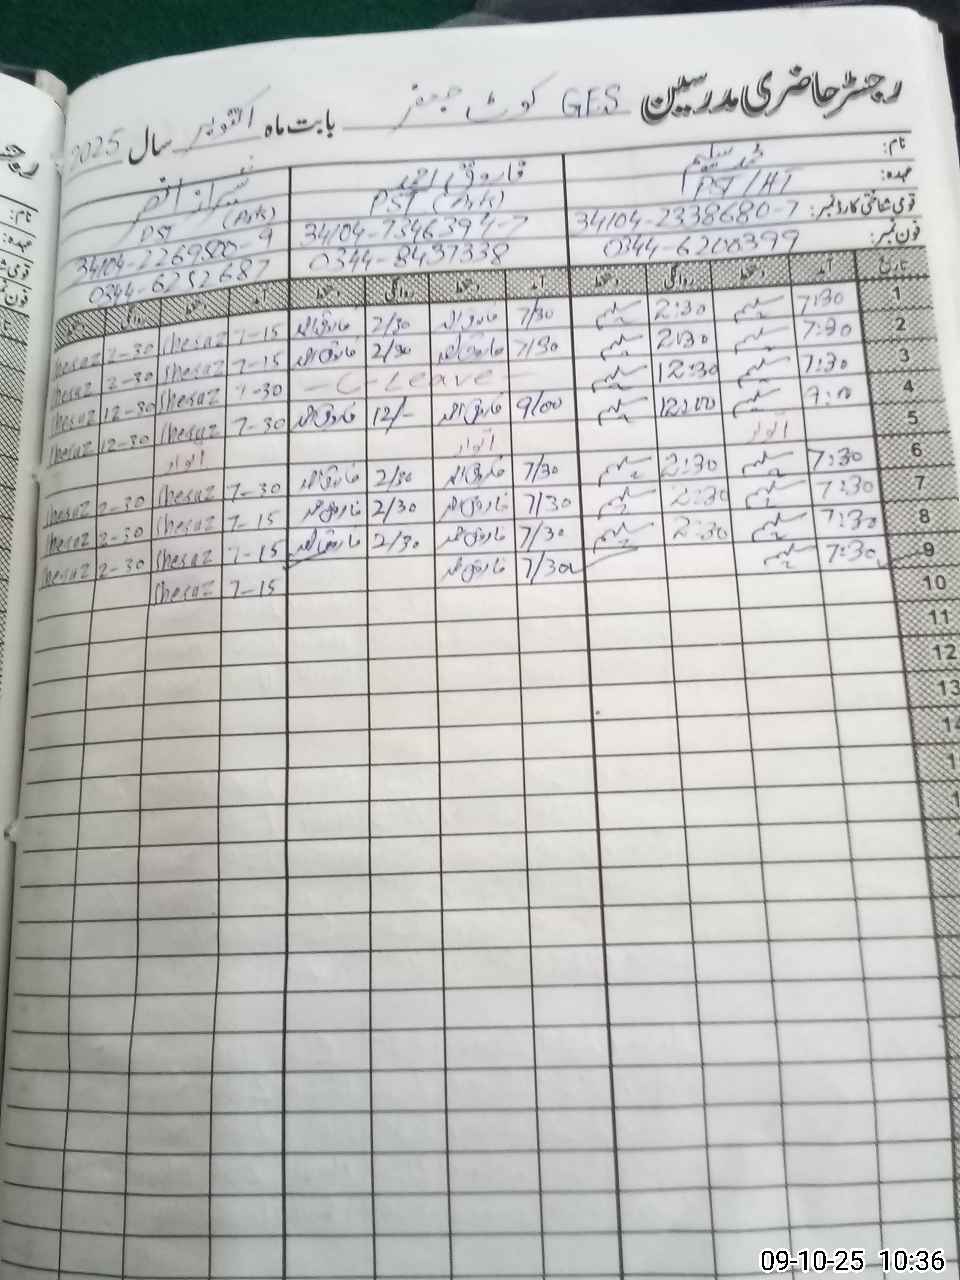 رجسٹر حاضری مدرسین GES کوٹ جعفر بابت ماہ اکتوبر سال 2025
نام: محمد سلیم فاروق احمد
عہدہ: PST/HT PST (Arts) PST (Arts)
قومی شناختی کارڈ نمبر: 34104-2338680-7 34104-7346394-7 34104-2269800-9
فون نمبر: 0344-6200399 0344-8437338 0344-6252687
تاریخ آمد دستخط روانگی دستخط آمد دستخط روانگی دستخط آمد دستخط روانگی دستخط
1 7:30 سلیم 2:30 سلیم 7/30 فاروق احمد 2/30 فاروق احمد 7-15 Sheraz 2-30 Sheraz
2 7:30 سلیم 2:30 سلیم 7/30 فاروق احمد 2/30 فاروق احمد 7-15 Sheraz 2-30 Sheraz
3 7:30 سلیم 12:30 سلیم - C-Leave - 7-30 Sheraz 12-30 Sheraz
4 9:00 سلیم 12:00 سلیم 9/00 فاروق احمد 12/- فاروق احمد 7-30 Sheraz 12-30 Sheraz
5 اتوار اتوار اتوار
6 7:30 سلیم 2:30 سلیم 7/30 فاروق احمد 2/30 فاروق احمد 7-30 Sheraz 2-30 Sheraz
7 7:30 سلیم 2:30 سلیم 7/30 فاروق احمد 2/30 فاروق احمد 7-15 Sheraz 2-30 Sheraz
8 7:30 سلیم 2:30 سلیم 7/30 فاروق احمد 2/30 فاروق احمد 7-15 Sheraz 2-30 Sheraz
9 7:30 سلیم 7/30 فاروق احمد 7-15 Sheraz
10
11
12
13
14
09-10-25 10:36